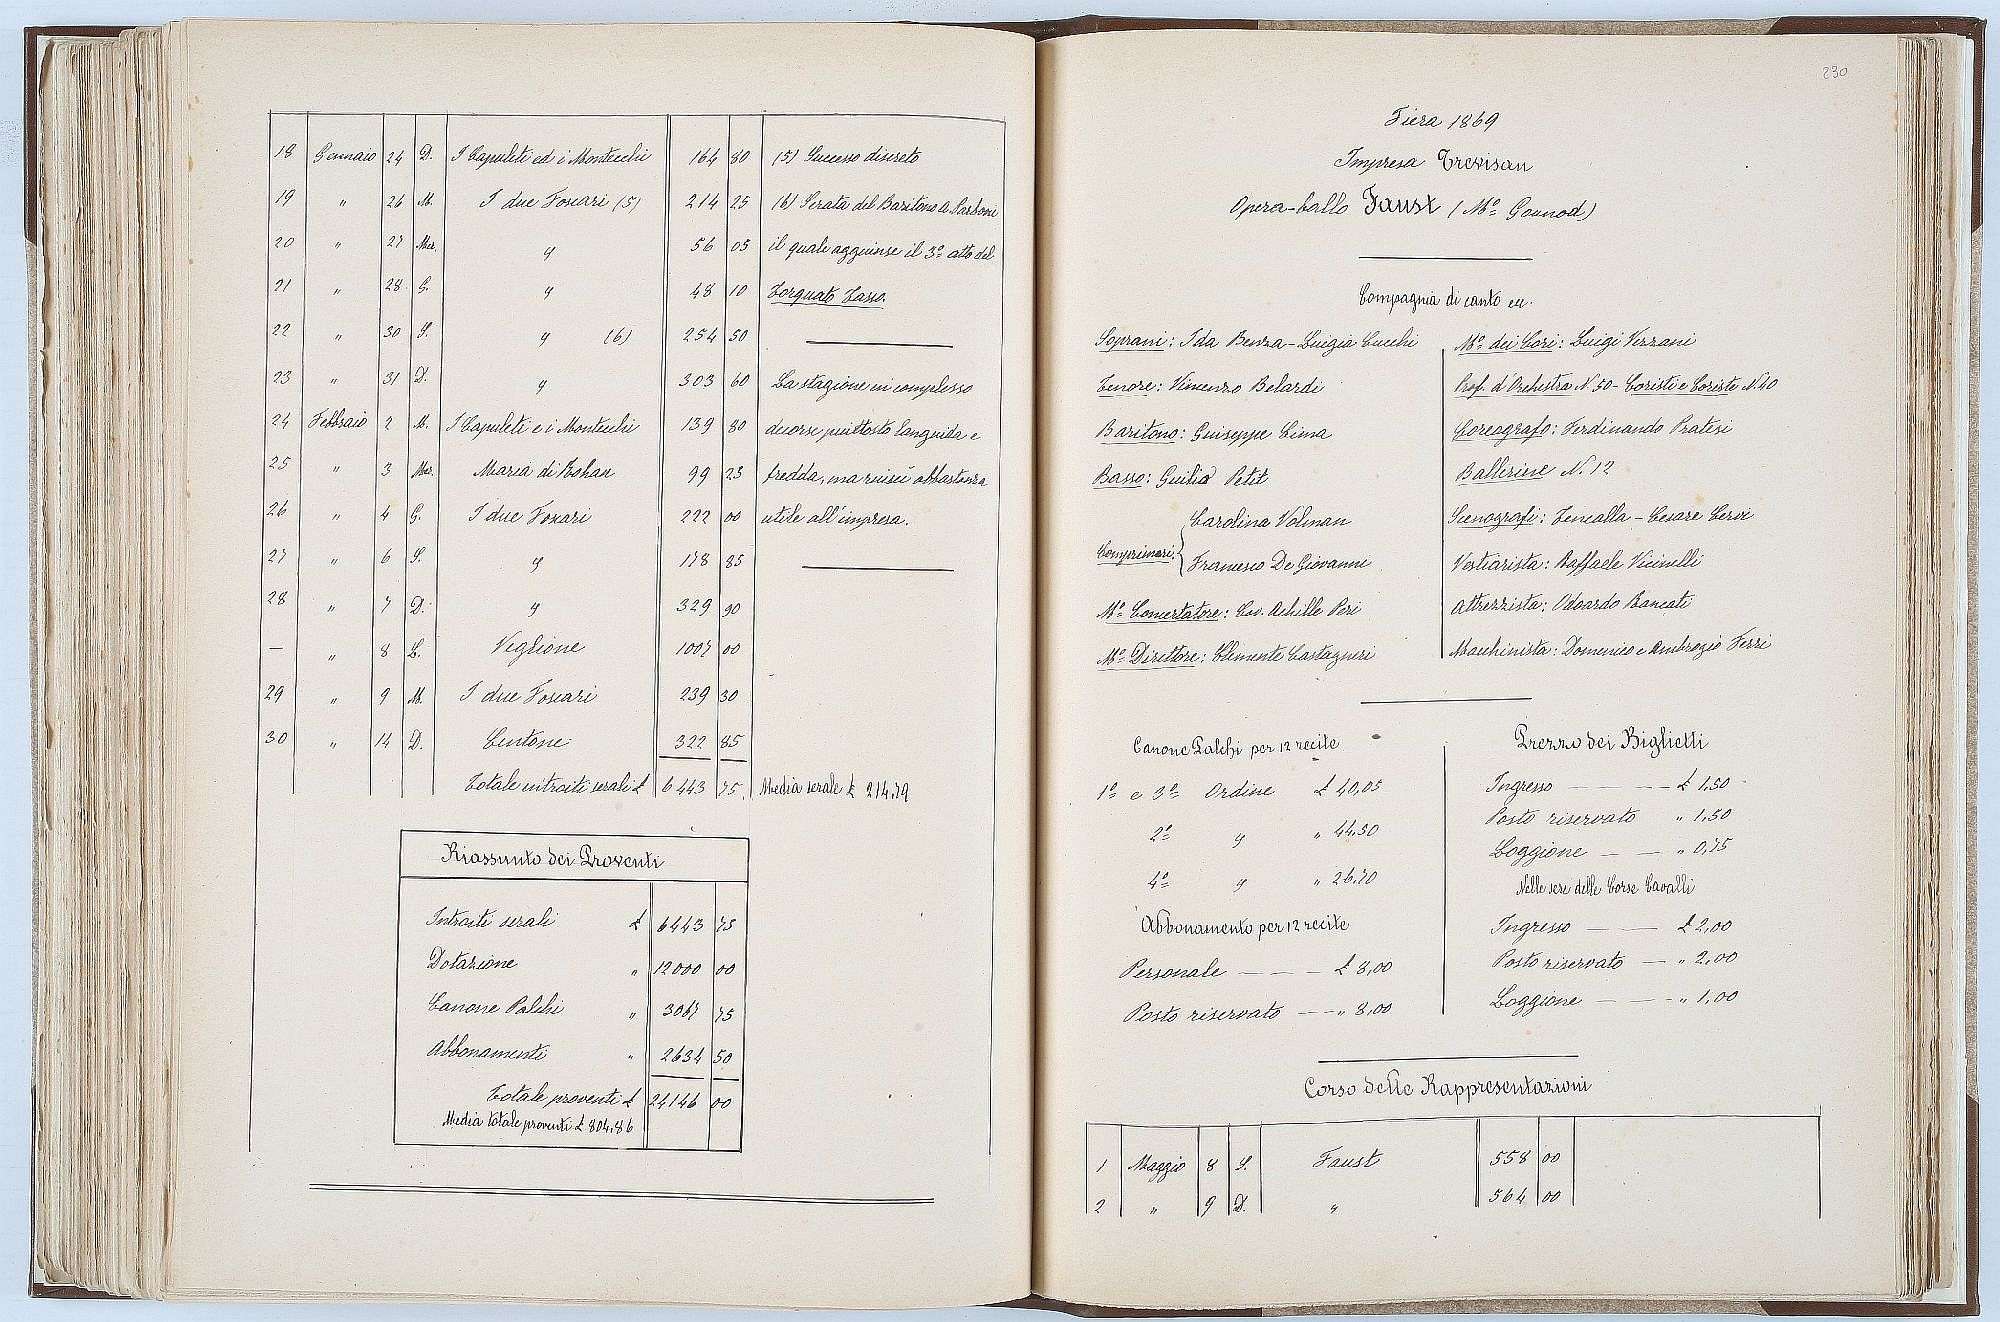 18 Gennaio 24 D. I Capuleti ed i Montecchi 164 80 (5) Successo discreto
19 " 26 M. I due Foscari (5) 214 25 (6) Serata del Baritono A. Parboni
20 " 27 Mer. " 56 05 il quale aggiunse il 3º atto del
21 " 28 G. " 48 10 Torquato Tasso.
22 " 30 S. " (6) 254 50
23 " 31 D. " 303 60 La stagione in complesso
24 Febbraio 2 M. I Capuleti e i Montecchi 139 80 decorse piuttosto languida e
25 " 3 Mer. Maria di Rohan 99 25 fredda, ma riuscì abbastanza
26 " 4 G. I due Foscari 222 00 utile all'impresa.
27 " 6 S. " 178 85
28 " 7 D. " 329 90
— " 8 L. Veglione 1007 00
29 " 9 M. I due Foscari 239 30
30 " 14 D. Centone 322 85
Totale introiti serali £ 6443 75. Media serale £ 214.79
Riassunto dei Proventi
Introiti serali £ 6443 75
Dotazione " 12000 00
Canone Palchi " 3067 75
Abbonamenti " 2634 50
Totale proventi £ 24146 00
Media totale proventi £ 804,86
230
Fiera 1869
Impresa Trevisan
Opera-ballo Faust (Mº Gounod)
Compagnia di canto ec.
Soprani: Ida Benza - Luigia Cucchi
Tenore: Vincenzo Belardi
Baritono: Giuseppe Cima
Basso: Giulio Petit
Comprimari: Carolina Volman
Francesco De Giovanni
Mº Concertatore: Cav. Achille Peri
Mº Direttore: Clemente Castagneri
Mº dei Cori: Luigi Vezzani
Prof. d'Orchestra N. 50 - Coristi e Coriste N. 40
Coreografo: Ferdinando Pratesi
Ballerine N. 12
Scenografi: Tencalla - Cesare Cervi
Vestiarista: Raffaele Vicinelli
Attrezzista: Odoardo Bancati
Macchinista: Domenico e Ambrogio Ferri
Canone Palchi per 12 recite
1º e 3º Ordine £ 40,05
2º " " 44.50
4º " " 26.70
Abbonamento per 12 recite
Personale — — — £ 8,00
Posto riservato — — " 8.00
Prezzo dei Biglietti
Ingresso — — — — £ 1,50
Posto riservato " 1,50
Loggione — — " 0,75
Nelle sere delle Corse Cavalli
Ingresso — — £ 2,00
Posto riservato — " 2.00
Loggione — — " 1,00
Corso delle Rappresentazioni
1 Maggio 8 S. Faust 558 00
2 " 9 D. " 564 00